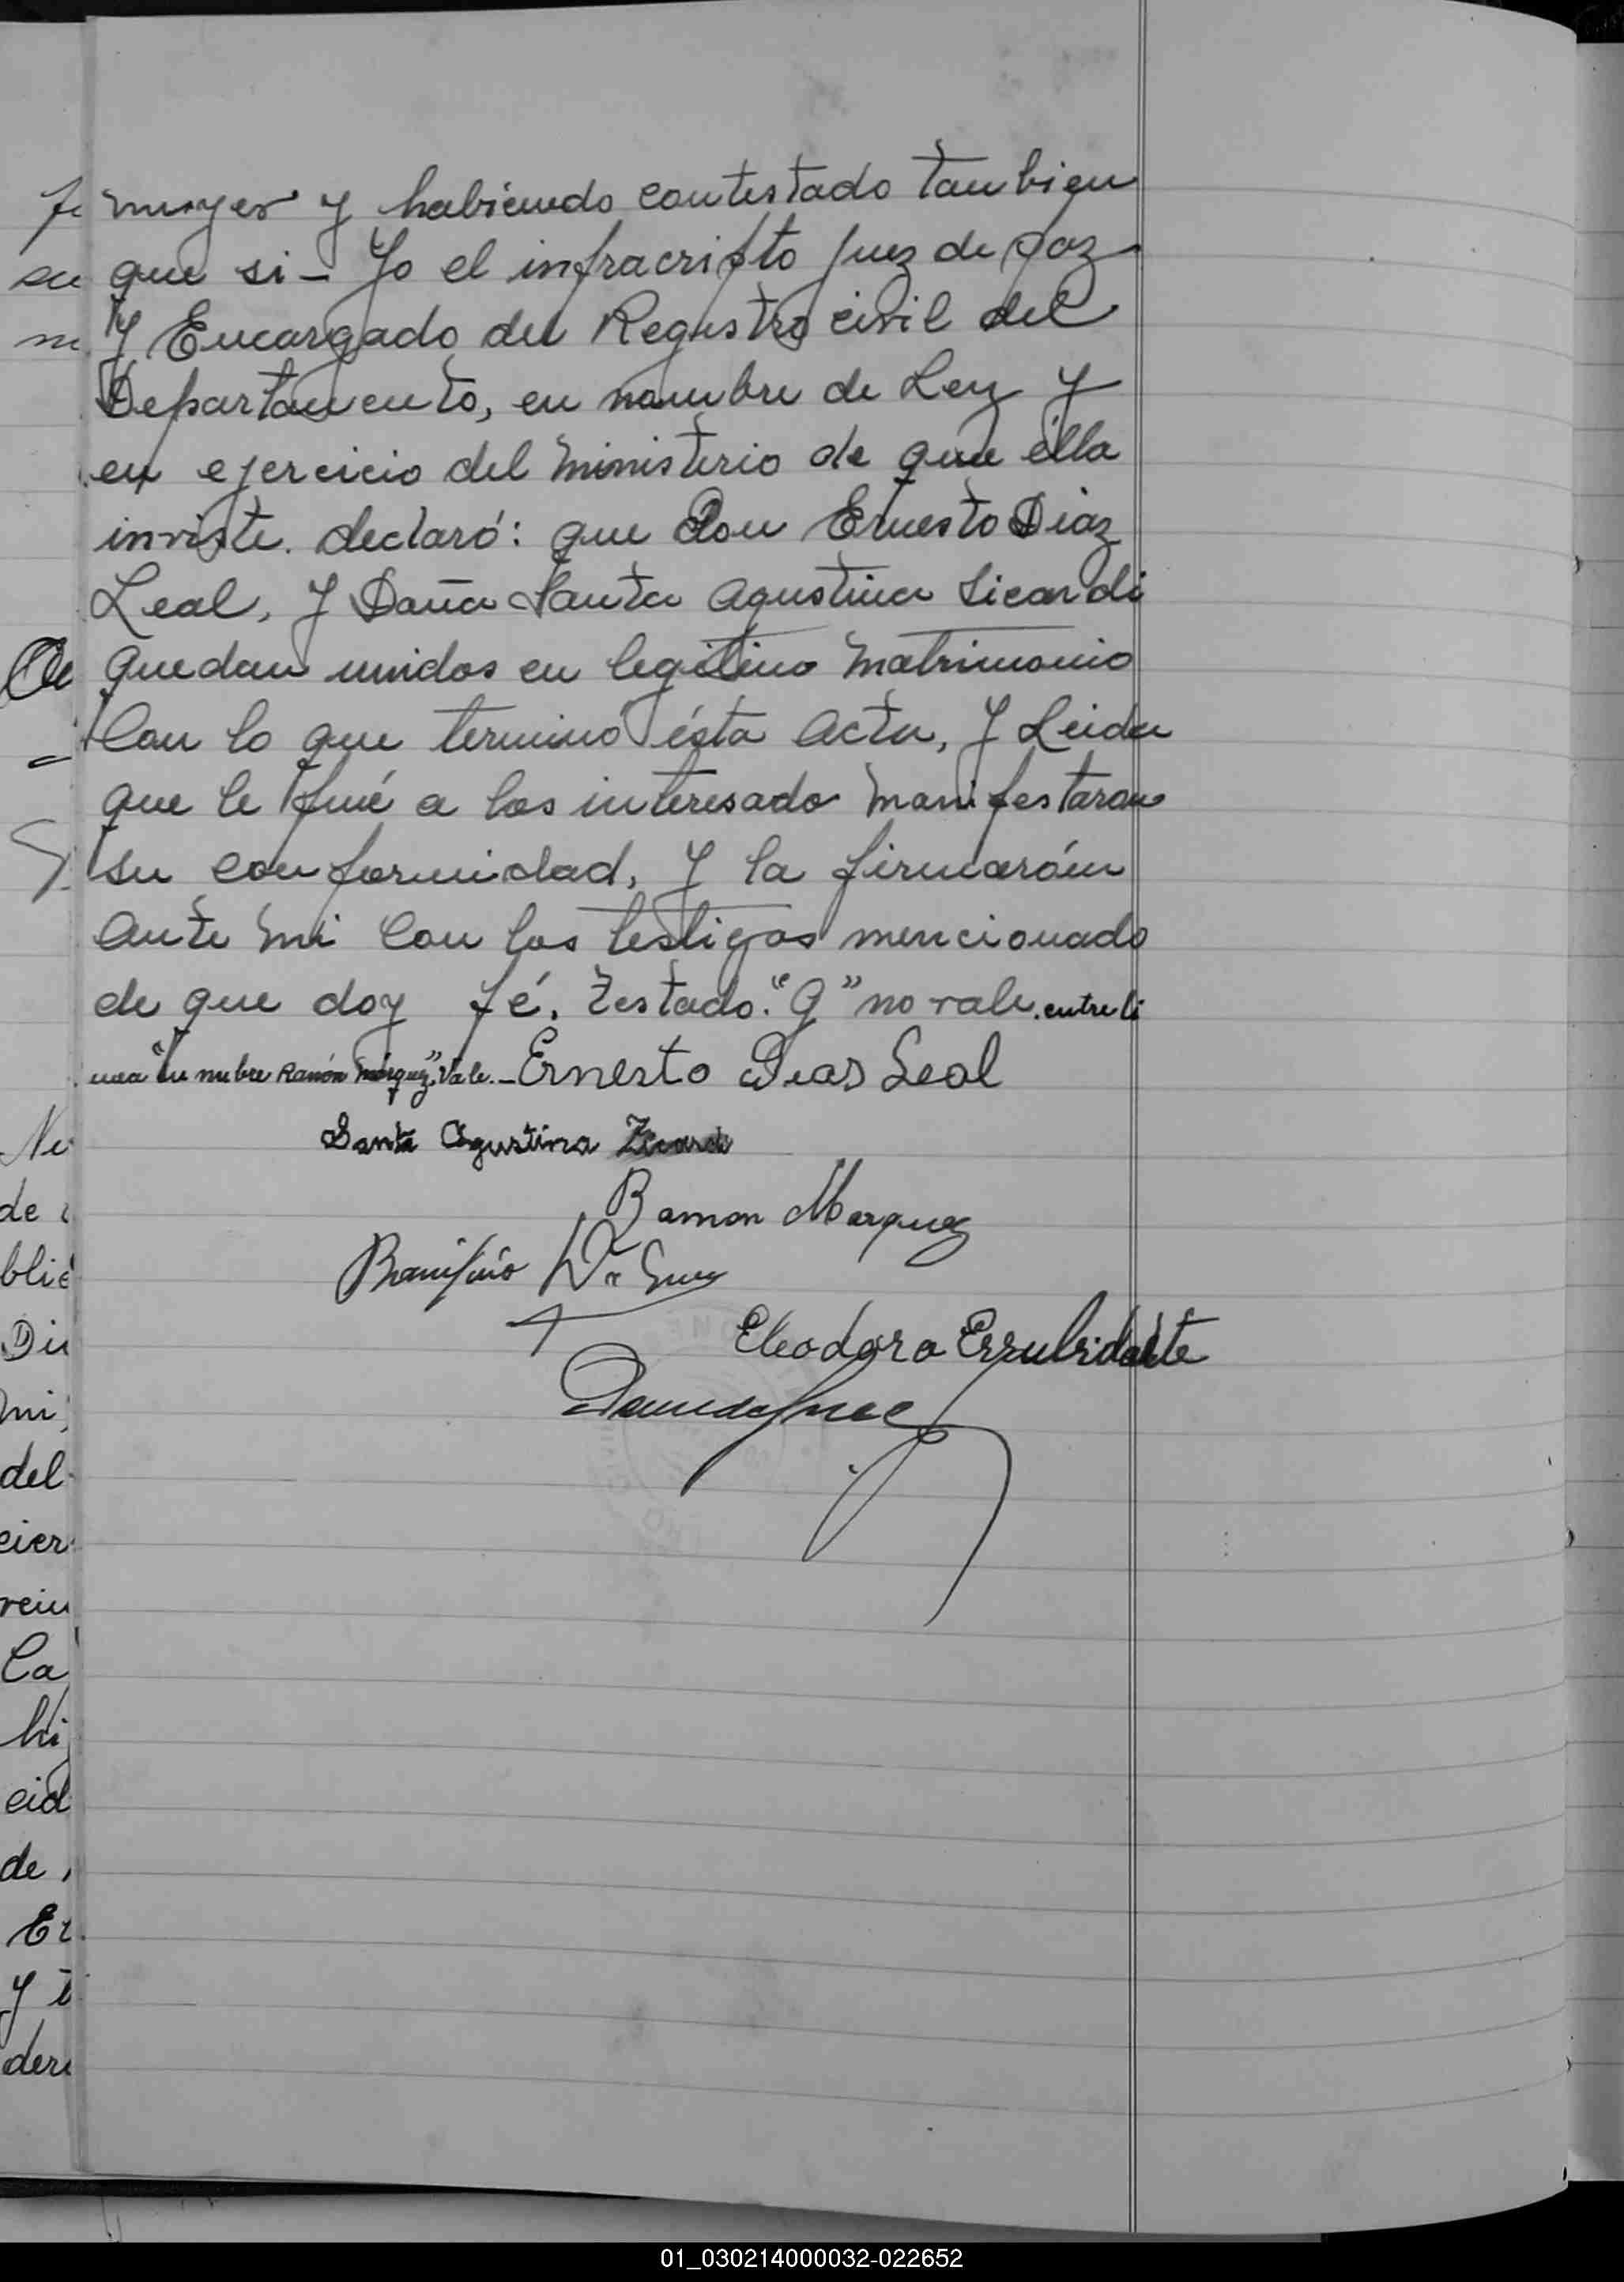 muger y habiendo contestado tambien
que si - Yo el infracripto Juez de paz
y Encargado del Registro civil del
Departamento, en nombre de Ley y
en ejercicio del ministerio de que élla
inviste. declaró: que don Ernesto Diaz
Leal, y Doña Santa Agustina Sicardi
quedan unidos en legitimo matrimonio
Con lo que terminó ésta acta, y Leida
que le fué a los interesado manifestaron
su conformidad, y la firmarón
ante mi con los testigos mencionado
de que doy fé. Testado "G" no vale. entre li
nea Ramón Márquez" Vale. - Ernesto Dias Leal
Santa Agustina
Ramon Marquez
Eleodoro
01_030214000032-022652